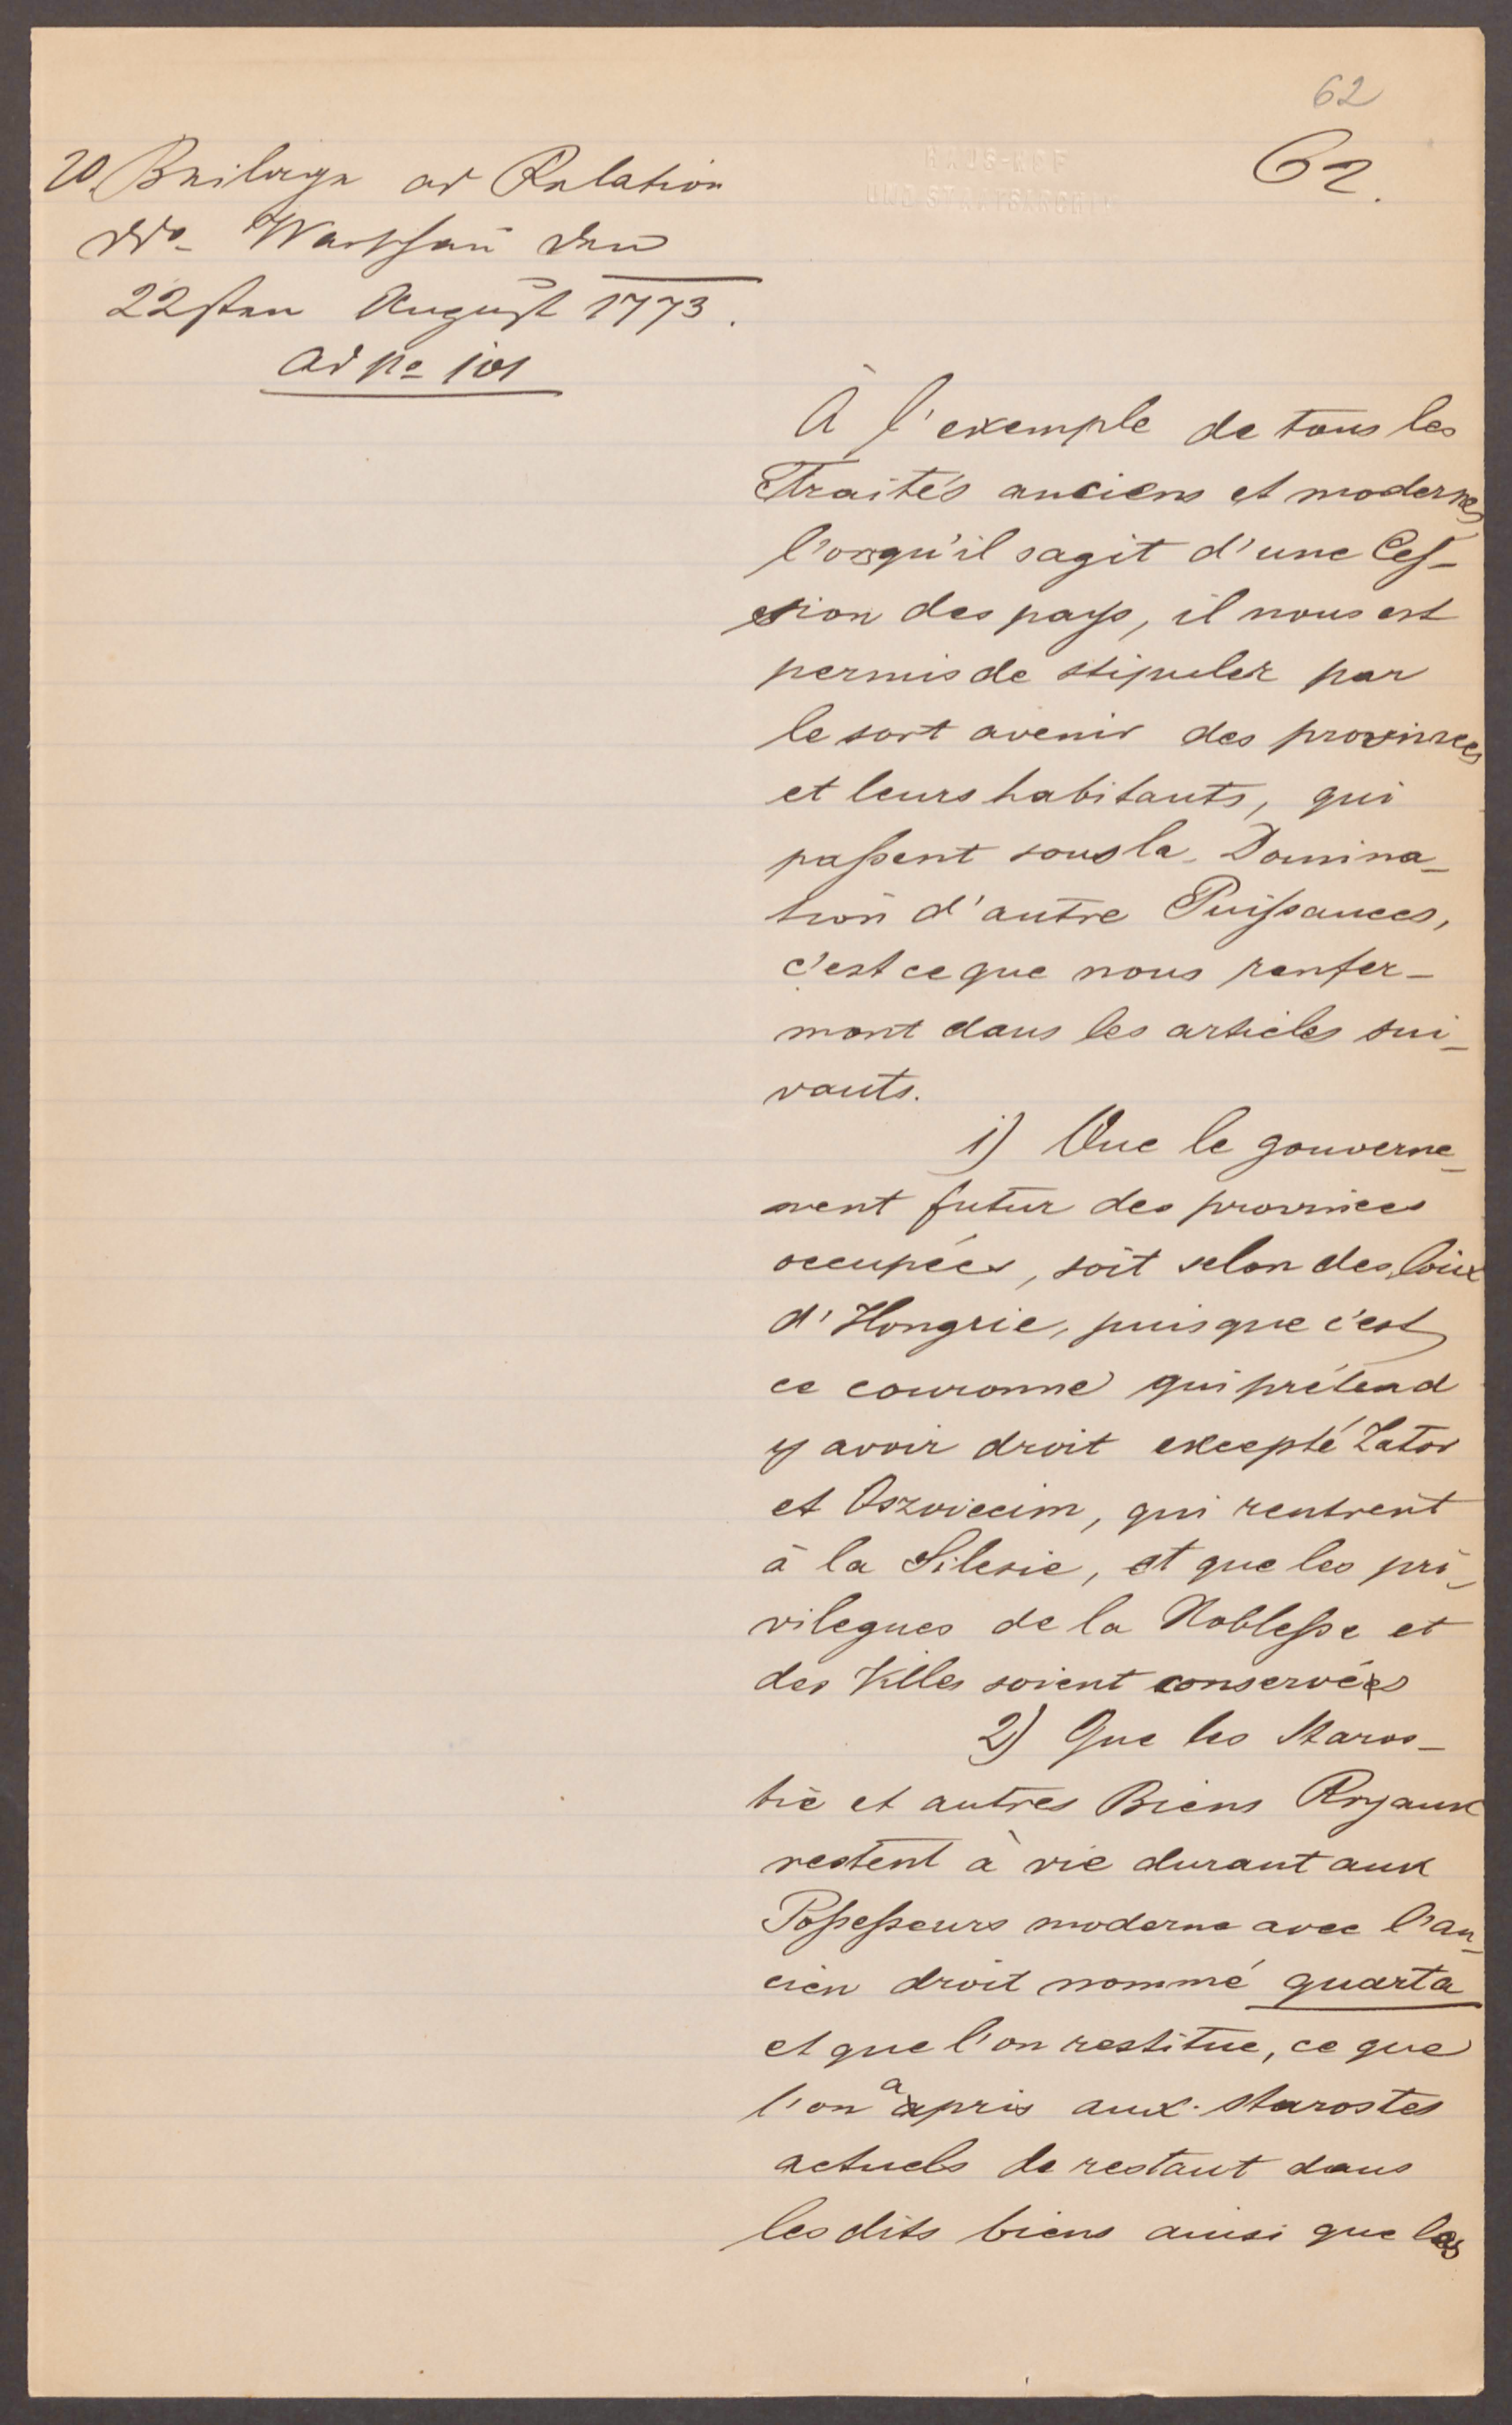 62
62.
HAUS-HOF
UND STAATSARCHIV
20. Beilage ad Relation
ddo Warschau den
22sten August 1773.
ad No 101
À l'exemple de tous les
Traités anciens et modernes
l'orsqu'il sagit d'une Ces-
sion des pays, il nous est
permis de stipuler par
le sort avenir des provinces
et leurs habitants, qui
passent sous la Domina-
tion d'autre Puissances,
c'est ce que nous renfer-
mont dans les articles sui-
vants.
1) Que le gouverne-
ment futur des provinces
occupées, soit selon des loix
d'Hongrie, puisque c'est
ce couronne qui prétend
y avoir droit excepté Zator
et Oszwiecim, qui rentrent
à la Silesie, et que les pri-
vilegues de la Noblesse et
des Villes soient conservées
2) Que les Staros-
tie et autres Biens Royaux
restent à vie durant aux
Possesseurs moderne avec l'an-
cien droit nommé quarta
et que l'on restitue, ce que
l'on a pris aux starostes
actuels de restant dans
les dits biens ainsi que les